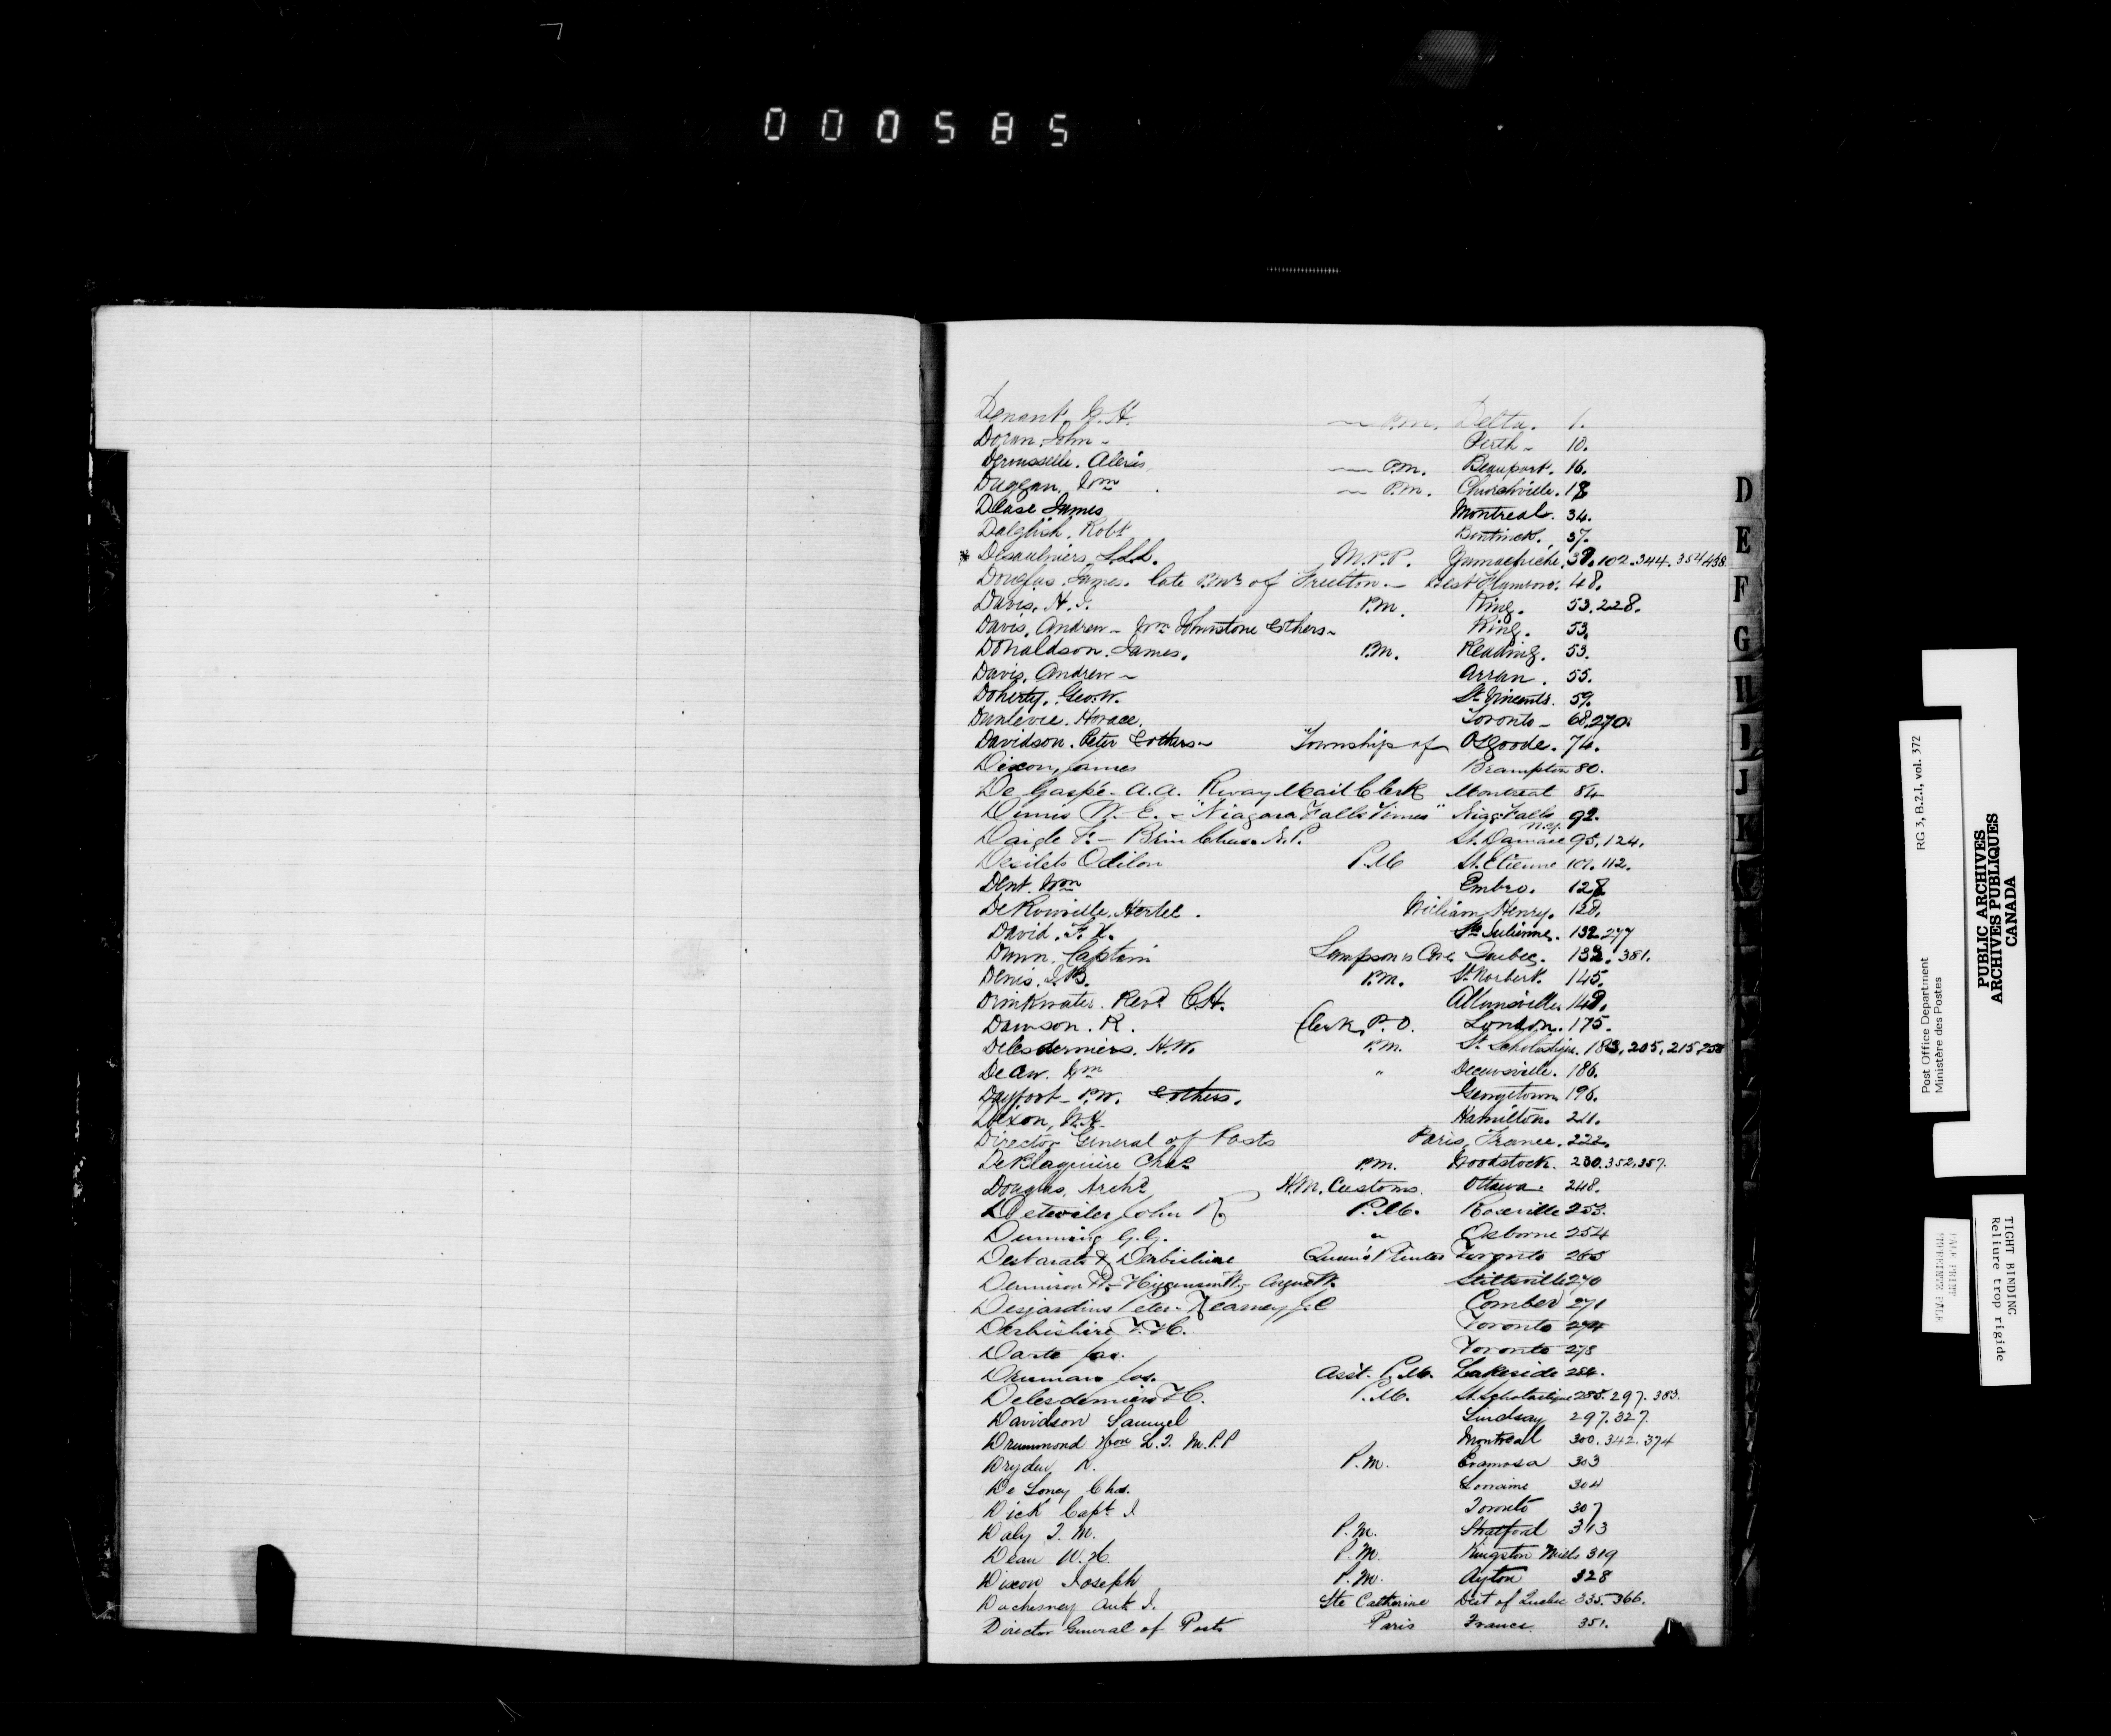 000585
Denant, G. H. P.M. Delta. 1.
Doran, John - Perth - 10.
Derousselle. Alexis P.M. Beauport. 16.
Duggan, Wm P.M. Churchville. 18
Dease James Montreal. 34.
Dalglish. Robt Bentinck. 37.
* Desaulniers, L.L.L. M.P.P. Yamachiche. 38. 102. 344. 354 438
Douglas. James. late P.Mr. of Freelton - West Flamboro. 48.
Davis. H. J. P.M. King. 53. 228.
Davis, Andrew - Wm Johnstone & others - King. 53.
Donaldson. James. P.M. Reading. 53.
Davis, Andrew - Arran. 55.
Doherty, Geo. W. St. Vincents. 59.
Dunlevie. Horace. Toronto - 68. 270.
Davidson. Peter & others - Township of Osgoode. 74.
Dixon, James Brampton 80.
De Gaspé. A.A. Rway Mail Clerk Montreal 84
Dinnis W. E. - "Niagara Falls Times" Niag Falls 92.
Daigle F. - N.P. St. Damase 95, 124.
Desilets Odilon P.M. St. Etienne 107. 112.
Dent. Wm Embro. 128
De Rouville. Hertel. William Henry. 128.
David. F. X. Ste Julienne. 132 277
Dunn. Captain Sampson's Cove Quebec. 132. 381.
Denis. J. B. P.M. St. Norbert. 145.
Drinkwater. Revd C.H. Allansville. 149.
Dawson. R. Clerk P.O. London. 175.
Delesderniers. H.W. P.M. St. Scholastique. 183, 205, 215, 258
De Cew. Wm " Decewsville. 186.
Dayfoot - P.W. & others. Georgetown 196.
Dixon, W. H. Hamilton. 211.
Director General of Posts Paris, France. 222.
DeBlaquiere Chas P.M. Woodstock. 230. 352. 357.
Douglas, Archd H.M. Customs. Ottawa. 248.
Detweiler John K. P.M. Roseville 253.
Dunning G. G. " Osborne 254
Desbarats & Derbishire Queen's Printer Toronto 265
Dennison Stittsville 270
Desjardins Peter Kearney J. C Comber 271
Derbishire F. H. Toronto 274
Darte Jas. Toronto 278
Jos. Asst. P.M. Lakeside 284.
Delesderniers H. P.M. St. Scholastique 285. 297. 383.
Davidson Samuel Lindsay 297. 327.
Drummond Hon L. T. M.P.P Montreal 300. 342. 374
Dryden R. P.M. Eramosa 303
De Loney Chas. Lorraine 304
Dick Capt J Toronto 307
Daly T. M. P.M. Stratford 313
Dean W. H. P.M. Kingston Mills 319
Dixon Joseph P.M. Ayton 328
Duchesnay Ant. J. Ste Catherine Dist of Quebec 335-366.
Director General of Posts Paris France. 351.
D
E
F
G
H
I
J
K
RG 3, B.2.1, vol. 372
Post Office Department
Ministère des Postes
PUBLIC ARCHIVES
ARCHIVES PUBLIQUES
CANADA
TIGHT BINDING
Reliure trop rigide
PALE PRINT